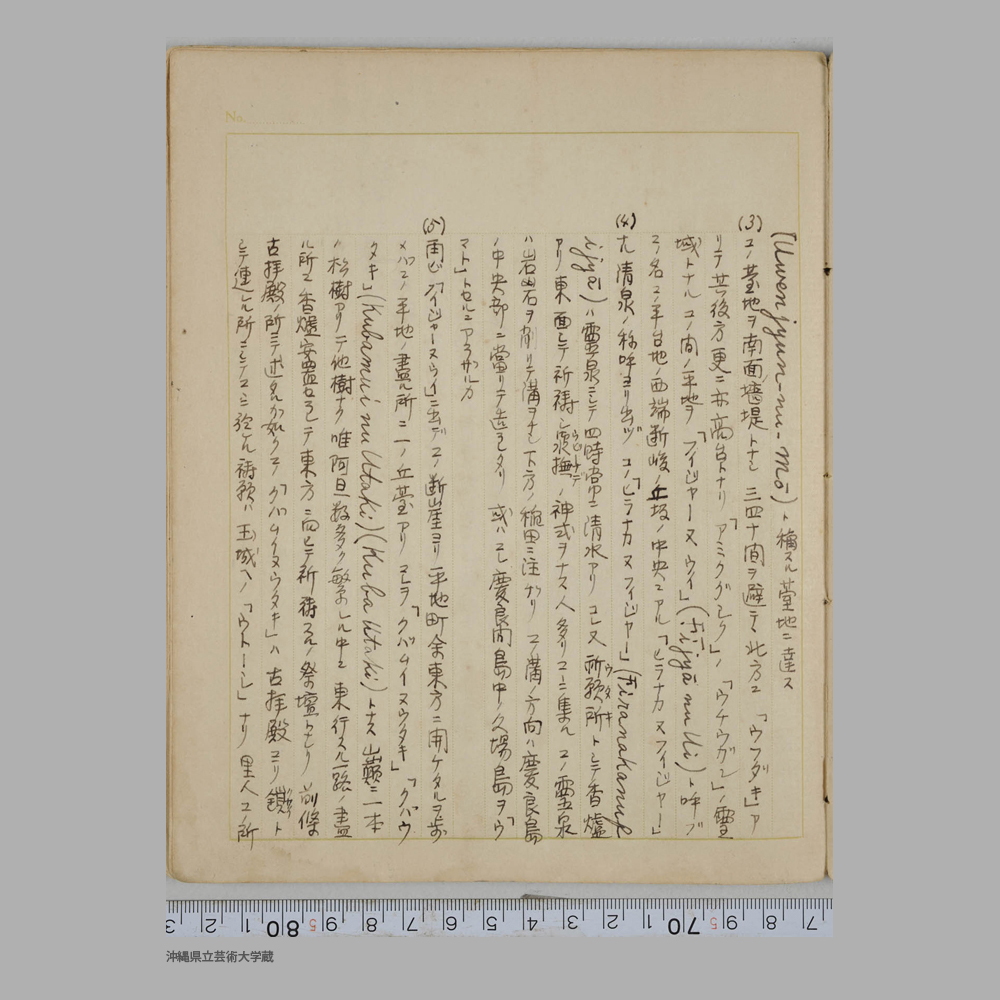 No.
(Uwenjyun-nu-mō)ト稱スル臺地ニ達ス
(3) コノ臺地ヲ南面墻堤トナシ 三四十間ヲ避テ北方ニ「ウフダキ」ア
リテ其後方更ニ亦高台トナリ「アミクダシク」ノ「ウチウガン」ノ靈
域トナルコノ間ノ平地ヲ「フイジャーヌウイ」(Fījyā nu Ui)ト呼ブ
コノ名コノ平台地ノ西端断崚ノ丘坂ノ中央ニアル「ヒラナカヌフイジャー」
(4) ナル清泉ノ称呼ヨリ出ヅ コノ「ヒラナカヌフイジャー」(Firanakanuf
ijyei)ハ靈泉ニシテ四時常ニ清水アリ コレ又祈願所トシテ香爐
アリ東面シテ祈祷シ泉撫ノ神式ヲナス人多クココニ集ル コノ靈泉
ハ岩山石ヲ削リテ溝ヲナシ下方ノ稲田ニ注ケリ コノ溝ノ方向ハ慶良島
ノ中央部ニ當リテ造ラレタリ 或ハコレ慶良間島中ノ久場島ヲ「ウ
マト」トセルニアラザルカ
(5) 再ビ「フイジャーヌウイ」ニ出デコノ断山崖ヨリ平地町余東方ニ開ケタルヲ歩
メハコノ平地ノ盡ル所ニ一ノ丘臺アリ コレヲ「クバムイヌウタキ」「クバウ
タキ」(Kubamui nu Utaki)(Kuba Utaki)トナス 山巓ニ一本
ノ松樹アリテ他樹ナク唯阿旦数多ク繁レル中ニ東行スル一路ノ盡
ル所ニ香爐安置セラレテ東方ニ向ヒテ祈祷スルノ祭壇トセリ 前條
古拝殿ノ所ニテ述ベタル如クコノ「クバムイヌウタキ」ハ古拝殿ヨリ鎖ト
シテ連レル所ニシテココニ於ケル祷願ハ玉城ヘノ「ウトーシ」ナリ 里人コノ所
ウタキ
ウビナデ
3 2 1 80 5 9 8 7 6 5 4 3 2 1 70 5 9 8 7
沖縄県立芸術大学蔵